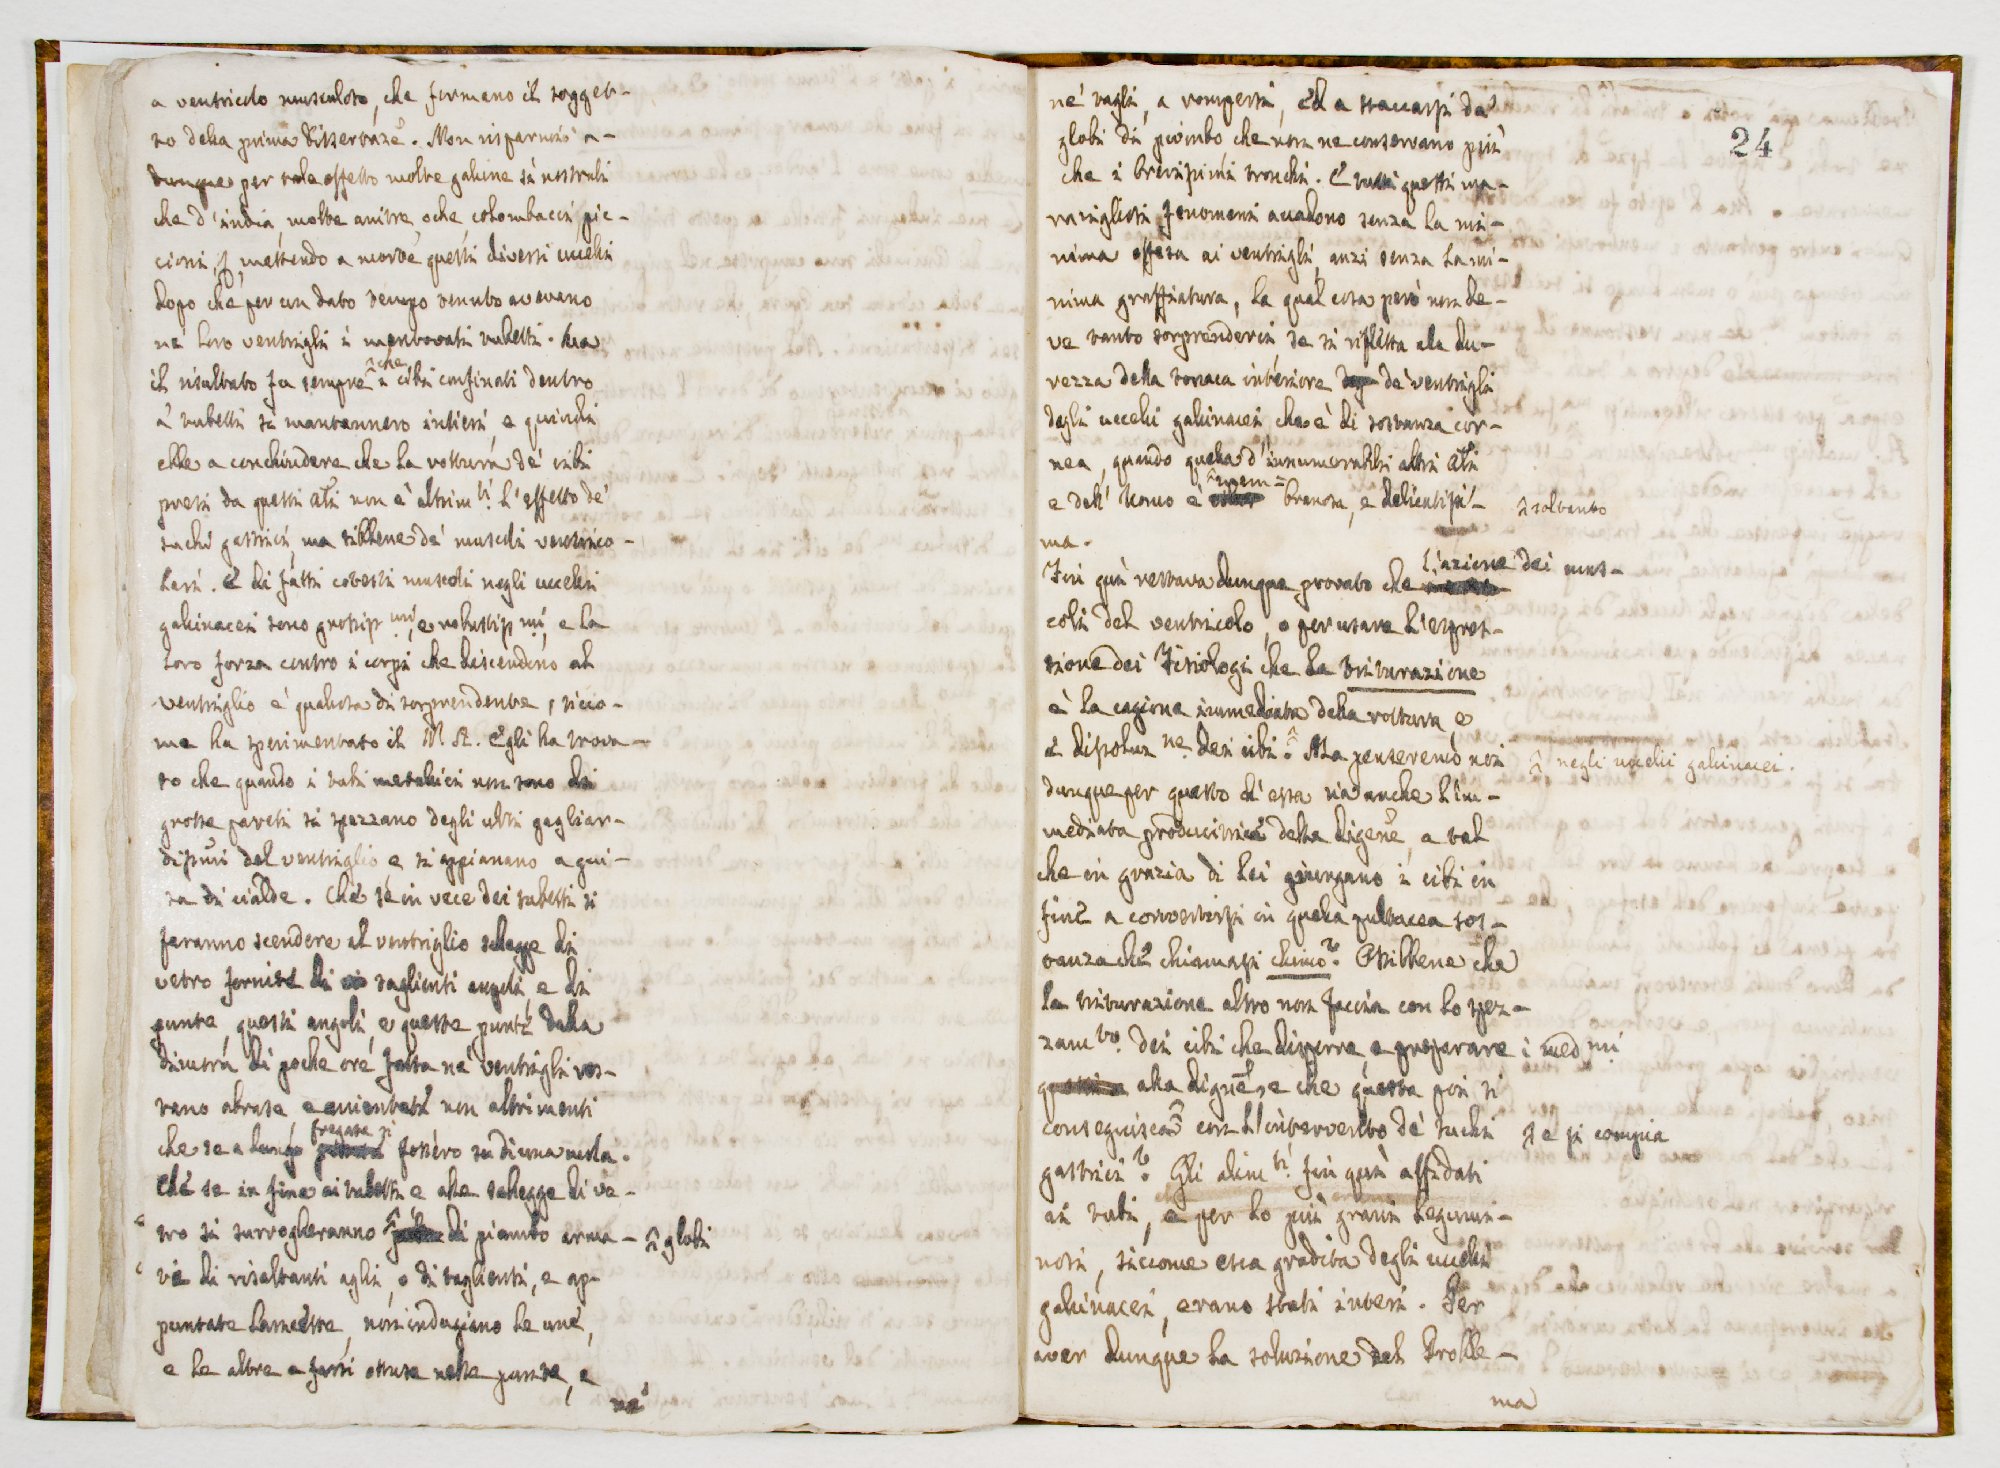 a ventricolo musculoso, che formano il sogget-
to della prima Dissertaz.e. Non risparmiò a-
dunque per tale effetto molte galline sì nostrali
che d'india, molte anitre, oche, colombacci, pic-
cioni, mettendo a morte questi diversi uccelli
dopo che per un dato tempo tenuto avevano
ne' loro ventrigli i mentovati tubetti. Ma
il risultato fu sempre che i cibi confinati dentro
a' tubetti si mantennero intieri, e quindi
ebbe a conchiudere che la rottura de' cibi
presi da questi ali non è altrim.ti l'effetto de'
suchi gastrici, ma sibbene de' muscoli ventrico-
lari. E di fatti cotesti muscoli negli uccelli
gallinacei sono grossiss.mi, e robustiss.mi, e la
loro forza contro i corpi che discendono al
ventriglio è qualcosa di sorprendente, sicco-
me ha sperimentato il N. A. Egli ha trova-
to che quando i tubi metallici non sono di
grosse pareti si spezzano degli urti gagliar-
dissimi del ventriglio e si spianano a gui-
sa di cialde. Che se in vece dei tubetti si
faranno scendere al ventriglio schegge di
vetro fornite di taglienti angoli, e di
punte, questi angoli, e queste punte dalla
dimora di poche ore fatta ne' ventrigli res-
tano abrase, e annientate non altrimenti
che se a lungo fregate si fossero su di una mola.
Che se in fine ai tubetti e alle schegge di ve-
tro si surrogheranno di piombo arma- globi
te di risaltanti aghi, o di taglienti, e ap-
puntate lancette, non indugiano le une,
e le altre a farsi ottuse nelle punte, e
ne'
24
ne' tagli, a rompersi, ed a staccarsi da'
globi di piombo che non ne conservano più
che i brevissimi tronchi. E tutti questi ma-
ravigliosi fenomeni accadono senza la mi-
nima offesa ai ventrigli, anzi senza la mi-
nima graffiatura, la qual cosa però non de-
ve tanto sorprenderci se si rifletta alla du-
rezza della tonaca interiore de' ventrigli
degli uccelli gallinacei che è di sostanza cor-
nea, quando quella d'innumerabili altri ali
e dell'Uomo è mem= branosa, e delicatissi- soltanto
ma.
Fin quì restava dunque provato che l'azione dei mus-
coli del ventricolo, o per usare l'espres-
sione dei Fisiologi che la triturazione
è la cagione immediata della rottura, e
dissoluz.ne dei cibi. Ma penseremo noi negli uccelli gallinacei.
dunque per questo ch'essa sia anche l'im-
mediata producitrice della digene, a tal
che in grazia di lei giungano i cibi in
fine a convertirsi in quella pultacea sos-
tanza che chiamasi chimo? O sibbene che
la triturazione altro non faccia con lo spez-
zam.to dei cibi che disporre e preparare i med.mi
alla digne, e che questa poi si
conseguisca con l'intervento de' suchi e si compia
gastrici? Gli alim.ti fin quì affidati
ai tubi, e per lo più grani legumi-
nosi, siccome esca gradita degli uccelli
gallinacei, erano stati interi. Per
aver dunque la soluzione del Proble-
ma